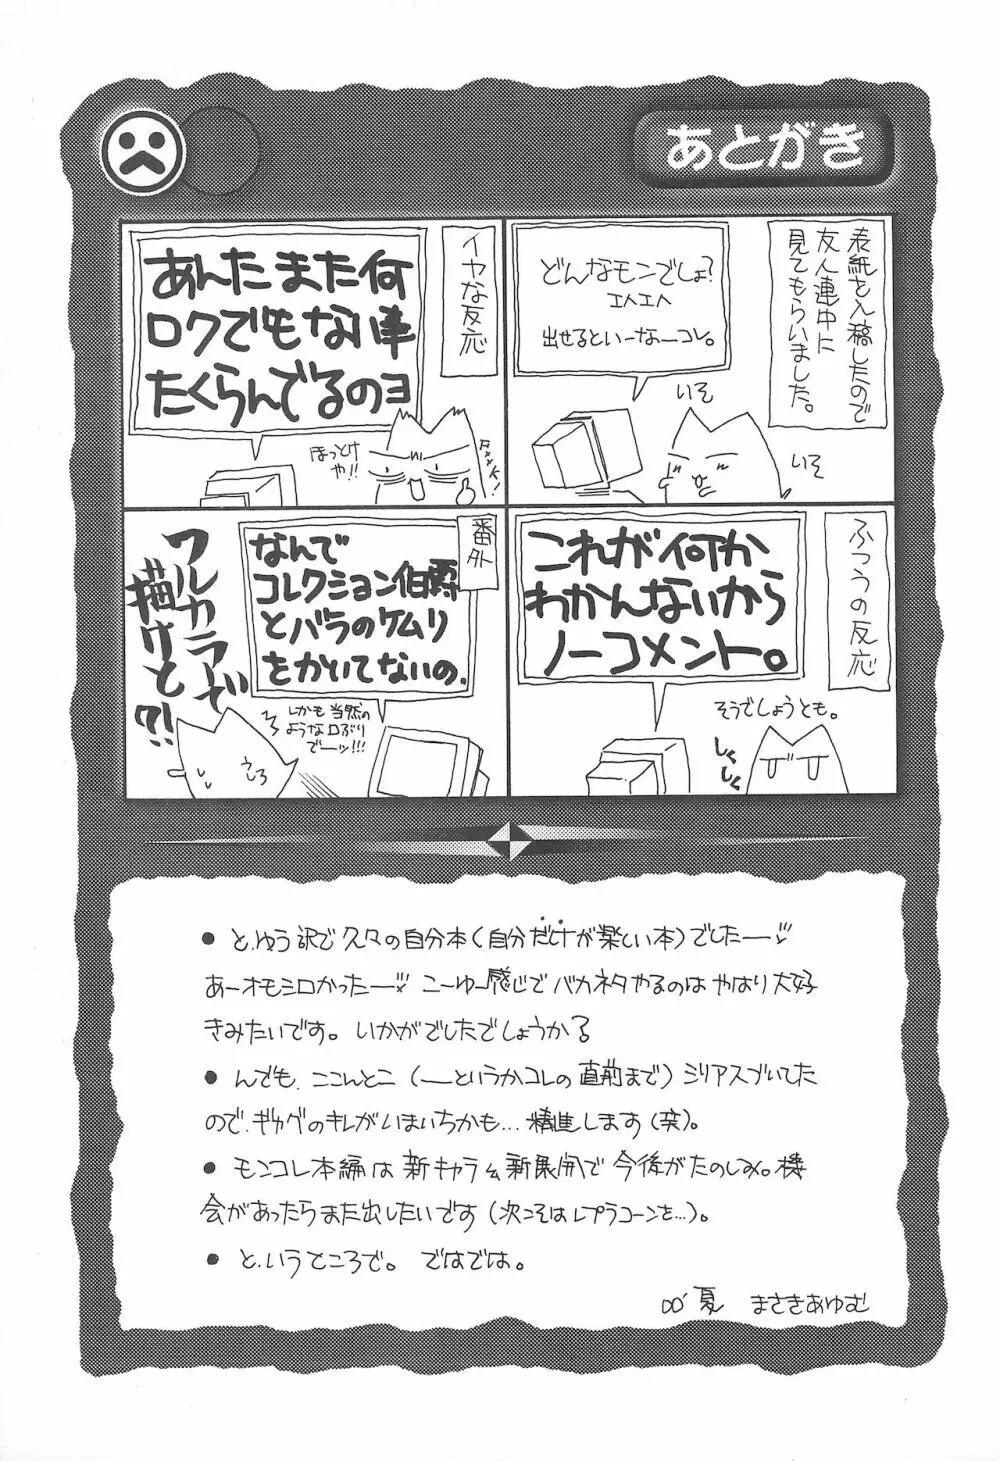 あとがき
表紙を入稿したので
友人連中に
見てもらいました。
どんなモンでしょ?
エヘエヘ
出せるといーなーコレ。
いそ
いそ
イヤな反応
あんたまた何
ロクでもない事
たくらんでるのヨ
ほっとけ
や!!
ふつうの反応
これが何か
わかんないから
ノーコメント。
そうでしょうとも。
しくしく
番外
なんで
コレクション伯爵
とバラのケムリ
をかいてないの.
しかも当然の
ような口ぶり
でーッ!!!
フルカラーで
描けと?!
●と、ゆう訳で久々の自分本(自分だけが楽しい本)でしたー♡
あーオモシロかったー♡ こーゆー感じでバカネタやるのはやはり大好
きみたいです。いかがでしたでしょうか?
●んでも、ここんとこ(ーというかコレの直前まで)シリアスづいてした
ので、ギャグのキレがいまいちかも…精進します(笑)。
●モンコレ本編は新キャラ&新展開で今後がたのしみ。機
会があったらまた出したいです(次こそはレプラコーンを…)。
●と、いうところで。ではでは。
00'夏 まさきあゆむ